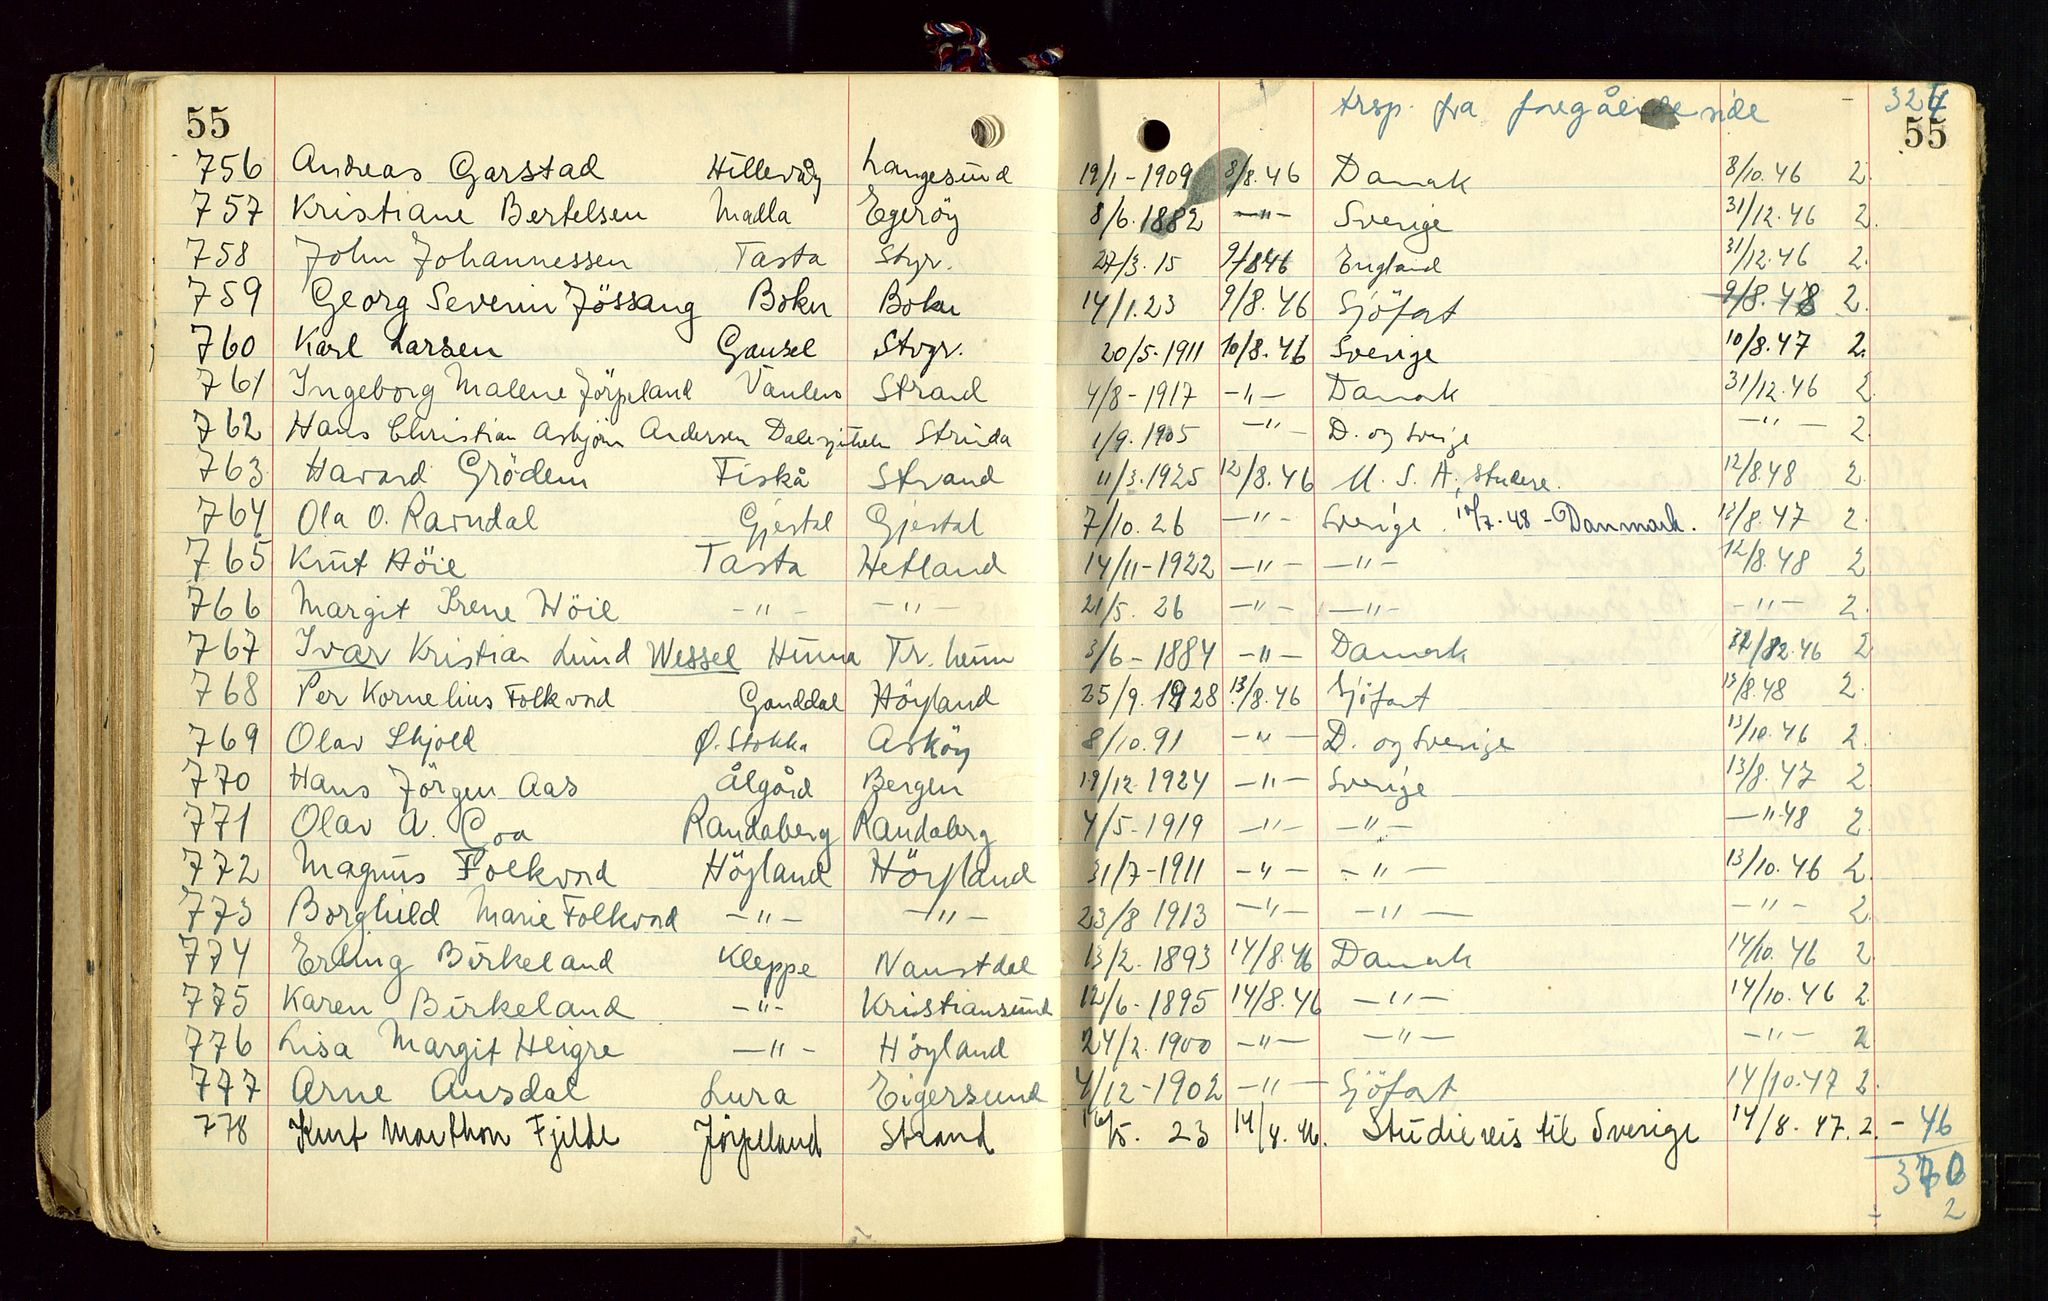 55
trsp. fra foregående side 324
55
756 Andreas Garstad Hillevåg Langesund 19/1-1909 8/8.46 Danmark 8/10.46 2.
757 Kristiane Bertelsen Malla Egeröy 8/6.1882 -"- Sverige 31/12.46 2.
758 John Johannessen Tasta Stvgr. 27/3.15 9/8 46 England 31/12.46 2.
759 Georg Severin Jössang Bokn Bokn 14/1.23 9/8.46 Sjöfart 9/8.48 2.
760 Karl Larsen Gausel Stvgr. 20/5-1911 10/8.46 Sverige 10/8.47 2.
761 Ingeborg Malene Jörpeland Vaulen Strand 4/8-1917 -"- Danmark 31/12.46 2.
762 Hans Christian Asbjörn Andersen Strinda 1/9.1905 -"- D. og Sverige -"- 2.
763 Havard Grödem Fiskå Strand 11/3.1925 12/8.46 U.S.A, studere. 12/8.48 2.
764 Ola O. Ravndal Gjestal Gjestal 7/10.26 -"- Sverige. 10/7.48 - Danmark. 12/8.47 2.
765 Knut Höie Tasta Hetland 14/11-1922 -"- -"- 12/8.48 2
766 Margit Irene Höie -"- -"- 21/5.26 -"- -"- -"- 2.
767 Ivar Kristian Lund Wessel Hinna Tr.heim 3/6-1884 -"- Danmark 31/12.46 2
768 Per Kornelius Folkvord Ganddal Höyland 25/9.1928 13/8.46 Sjöfart 13/8.48 2.
769 Olav Skjold Ø.Stokka Asköy 8/10.91 -"- D. og Sverige 13/10.46 2.
770 Hans Jörgen Aas Ålgård Bergen 19/12.1924 -"- Sverige 13/8.47 2
771 Olav A. Goa Randaberg Randaberg 4/5-1919 -"- -"- -"-48 2
772 Magnus Folkvord Höyland Höyland 31/7-1911 -"- -"- 13/10.46 2.
773 Borghild Marie Folkvord -"- -"- 23/8 1913 -"- -"- -"- 2.
774 Erling Birkeland Kleppe Naustdal 13/2.1893 14/8.46 Danmark 14/10.46 2.
775 Karen Birkeland -"- Kristiansund 12/6-1895 14/8.46 -"- 14/10.46 2.
776 Lisa Margit Heigre -"- Höyland 24/2.1900 -"- -"- -"- 2
777 Arne Ausdal Lura Eigersund 4/12-1902 -"- Sjöfart 14/10.47 2.
778 Knut Marthon Fjelde Jörpeland Strand 16/5.23 14/8.46. Studiereis til Sverige 14/8.47. 2. - 46
370
2